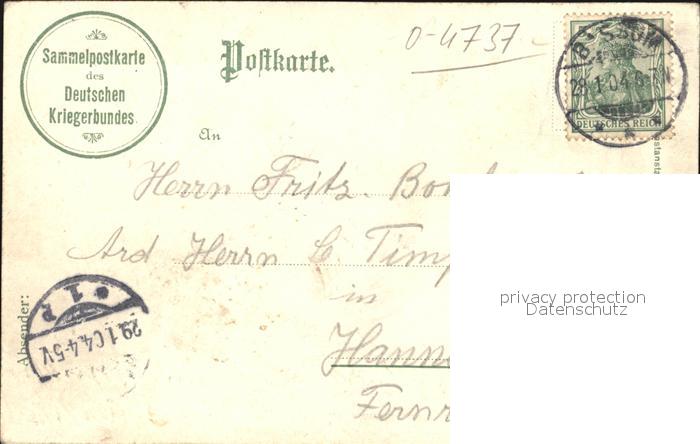 Sammelpostkarte
des
Deutschen
Kriegerbundes
Postkarte.
0-4737
28.1.04.6-7N
DEUTSCHES REICH
An
Herrn Fritz
Ard Herrn C. Timp
in
Hann
Fernr
Absender:
29.1.04.4-5V
privacy protection
Datenschutz